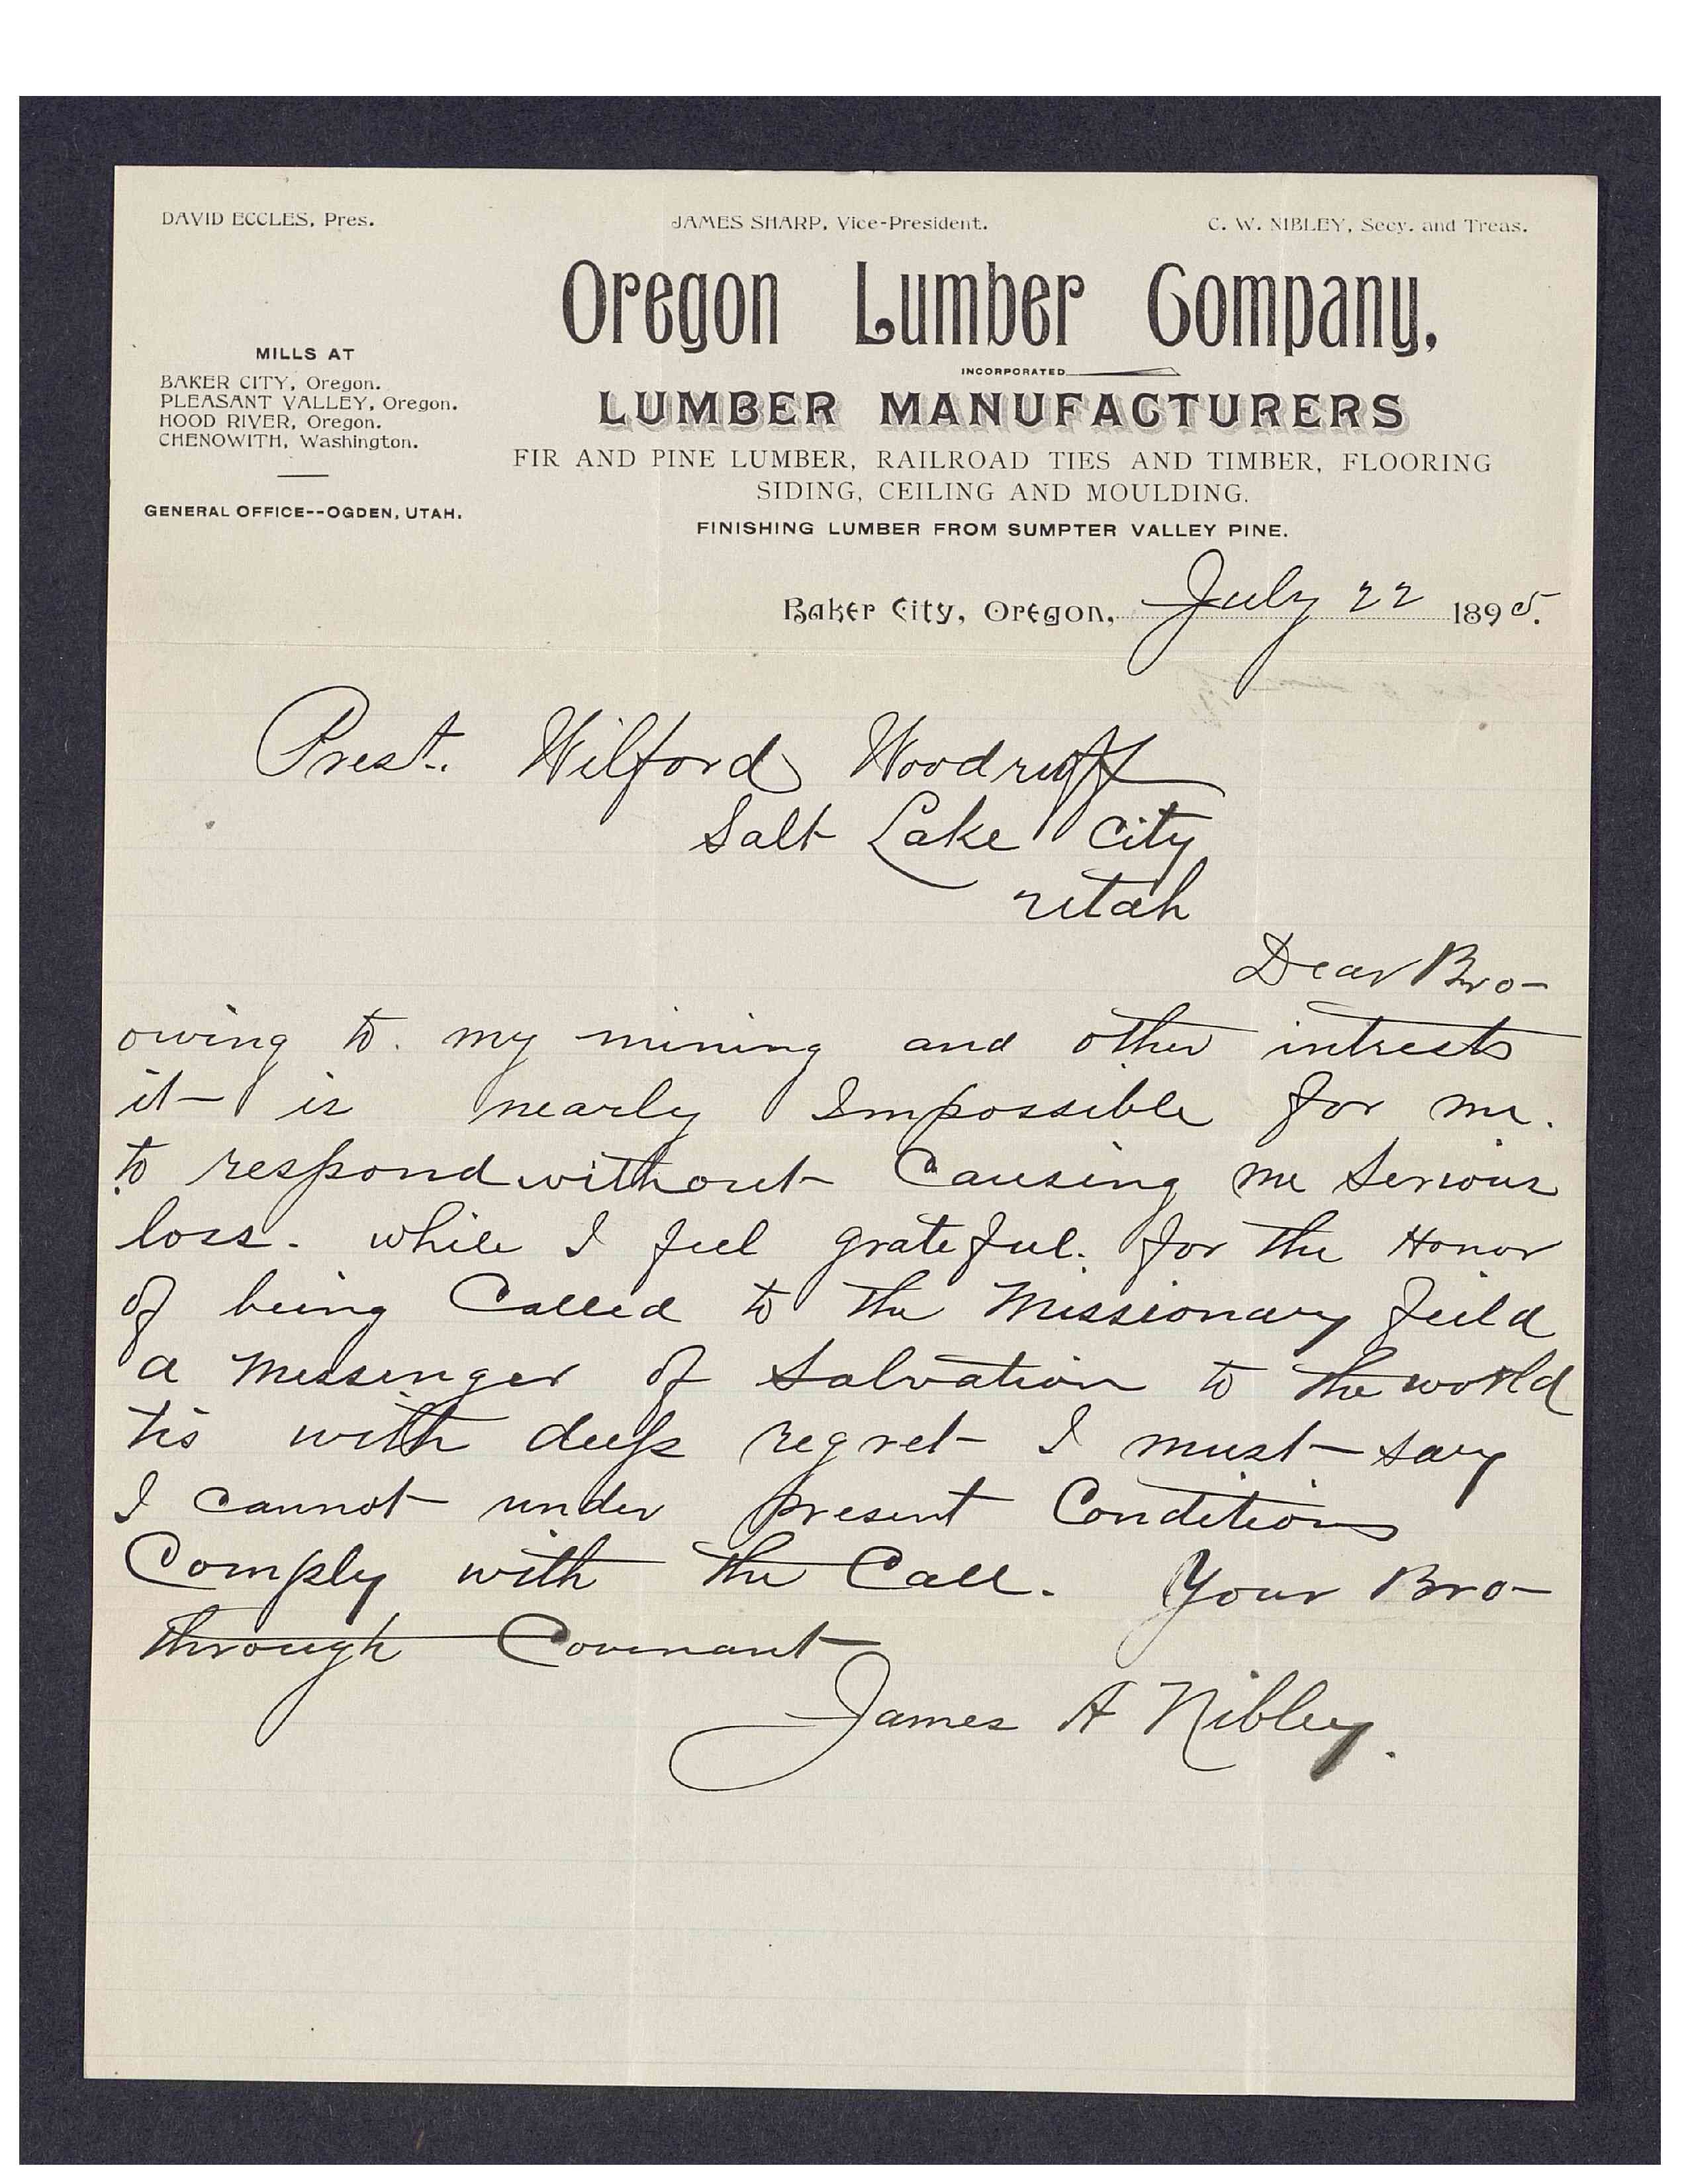 DAVID ECCLES, Pres.
JAMES SHARP, Vice-President.
C. W. NIBLEY, Secy. and Treas.
Oregon Lumber Company,
INCORPORATED
LUMBER MANUFACTURERS
FIR AND PINE LUMBER, RAILROAD TIES AND TIMBER, FLOORING
SIDING, CEILING AND MOULDING.
FINISHING LUMBER FROM SUMPTER VALLEY PINE.
MILLS AT
BAKER CITY, Oregon.
PLEASANT VALLEY, Oregon.
HOOD RIVER, Oregon.
CHENOWITH, Washington.
GENERAL OFFICE--OGDEN, UTAH.
Baker City, Oregon, July 22 1895.
Prest. Wilford Woodruff
Salt Lake City
Utah
Dear Bro-
owing to. my mining and other intrests
it is nearly Impossible for me.
to respond without Causing me Serious
loss. while I feel grateful. for the Honor
of being Called to the Missionary feild
a Messenger of Salvation to the world
tis with deep regret I must say
I cannot under present Conditions
Comply with the Call. Your Bro-
through Covenant
James A Nibley.